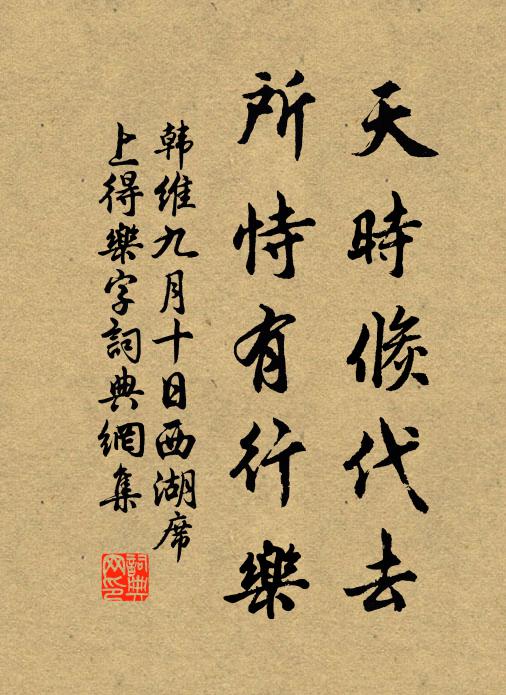 天時倏代去
所恃有行樂
韓維九月十日西湖席
上得樂字詞典網集
詞典
网印